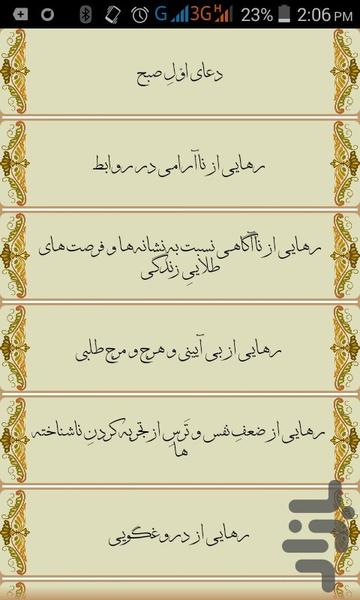 G 3G H 23% 2:06 PM
دعای اوّلِ صبح
رهایی از ناآرامی در روابط
رهایی از ناآگاهی نسبت به نشانه‌ها و فرصت‌های
طلاییِ زندگی
رهایی از بی آیینی و هرج و مرج طلبی
رهایی از ضعفِ نفس و تَرسِ از تجربه کردنِ ناشناخته
ها
رهایی از دروغگویی
بازار